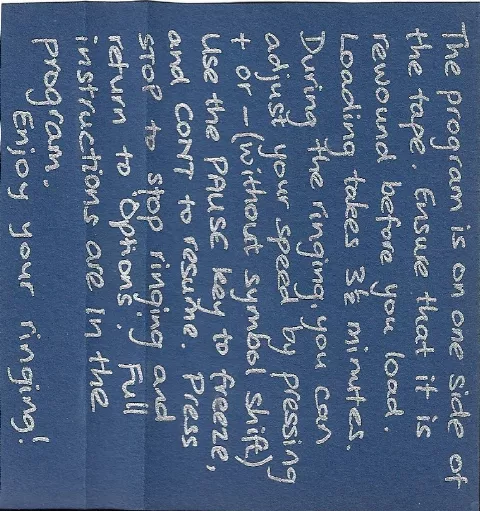 The program is on one side of
the tape. Ensure that it is
rewound before you load.
Loading takes 3½ minutes.
During the ringing, you can
adjust your speed by pressing
+ or - (without symbol shift)
Use the PAUSE key to freeze,
and CONT to resume. Press
STOP to stop ringing and
return to 'Options'. Full
instructions are in the
program.
Enjoy your ringing!